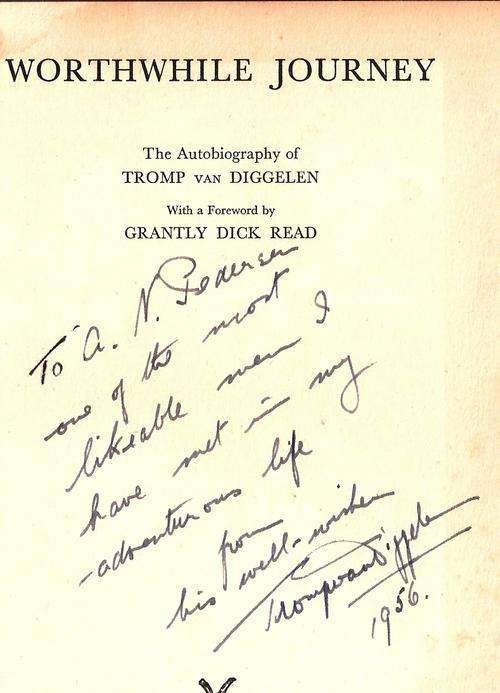 WORTHWHILE JOURNEY
The Autobiography of
TROMP VAN DIGGELEN
With a Foreword by
GRANTLY DICK READ
To A. N. Pedersen
one of the most
likeable men I
have met in my
-adventurous life
from
his well-wisher
Tromp van Diggelen
1956.